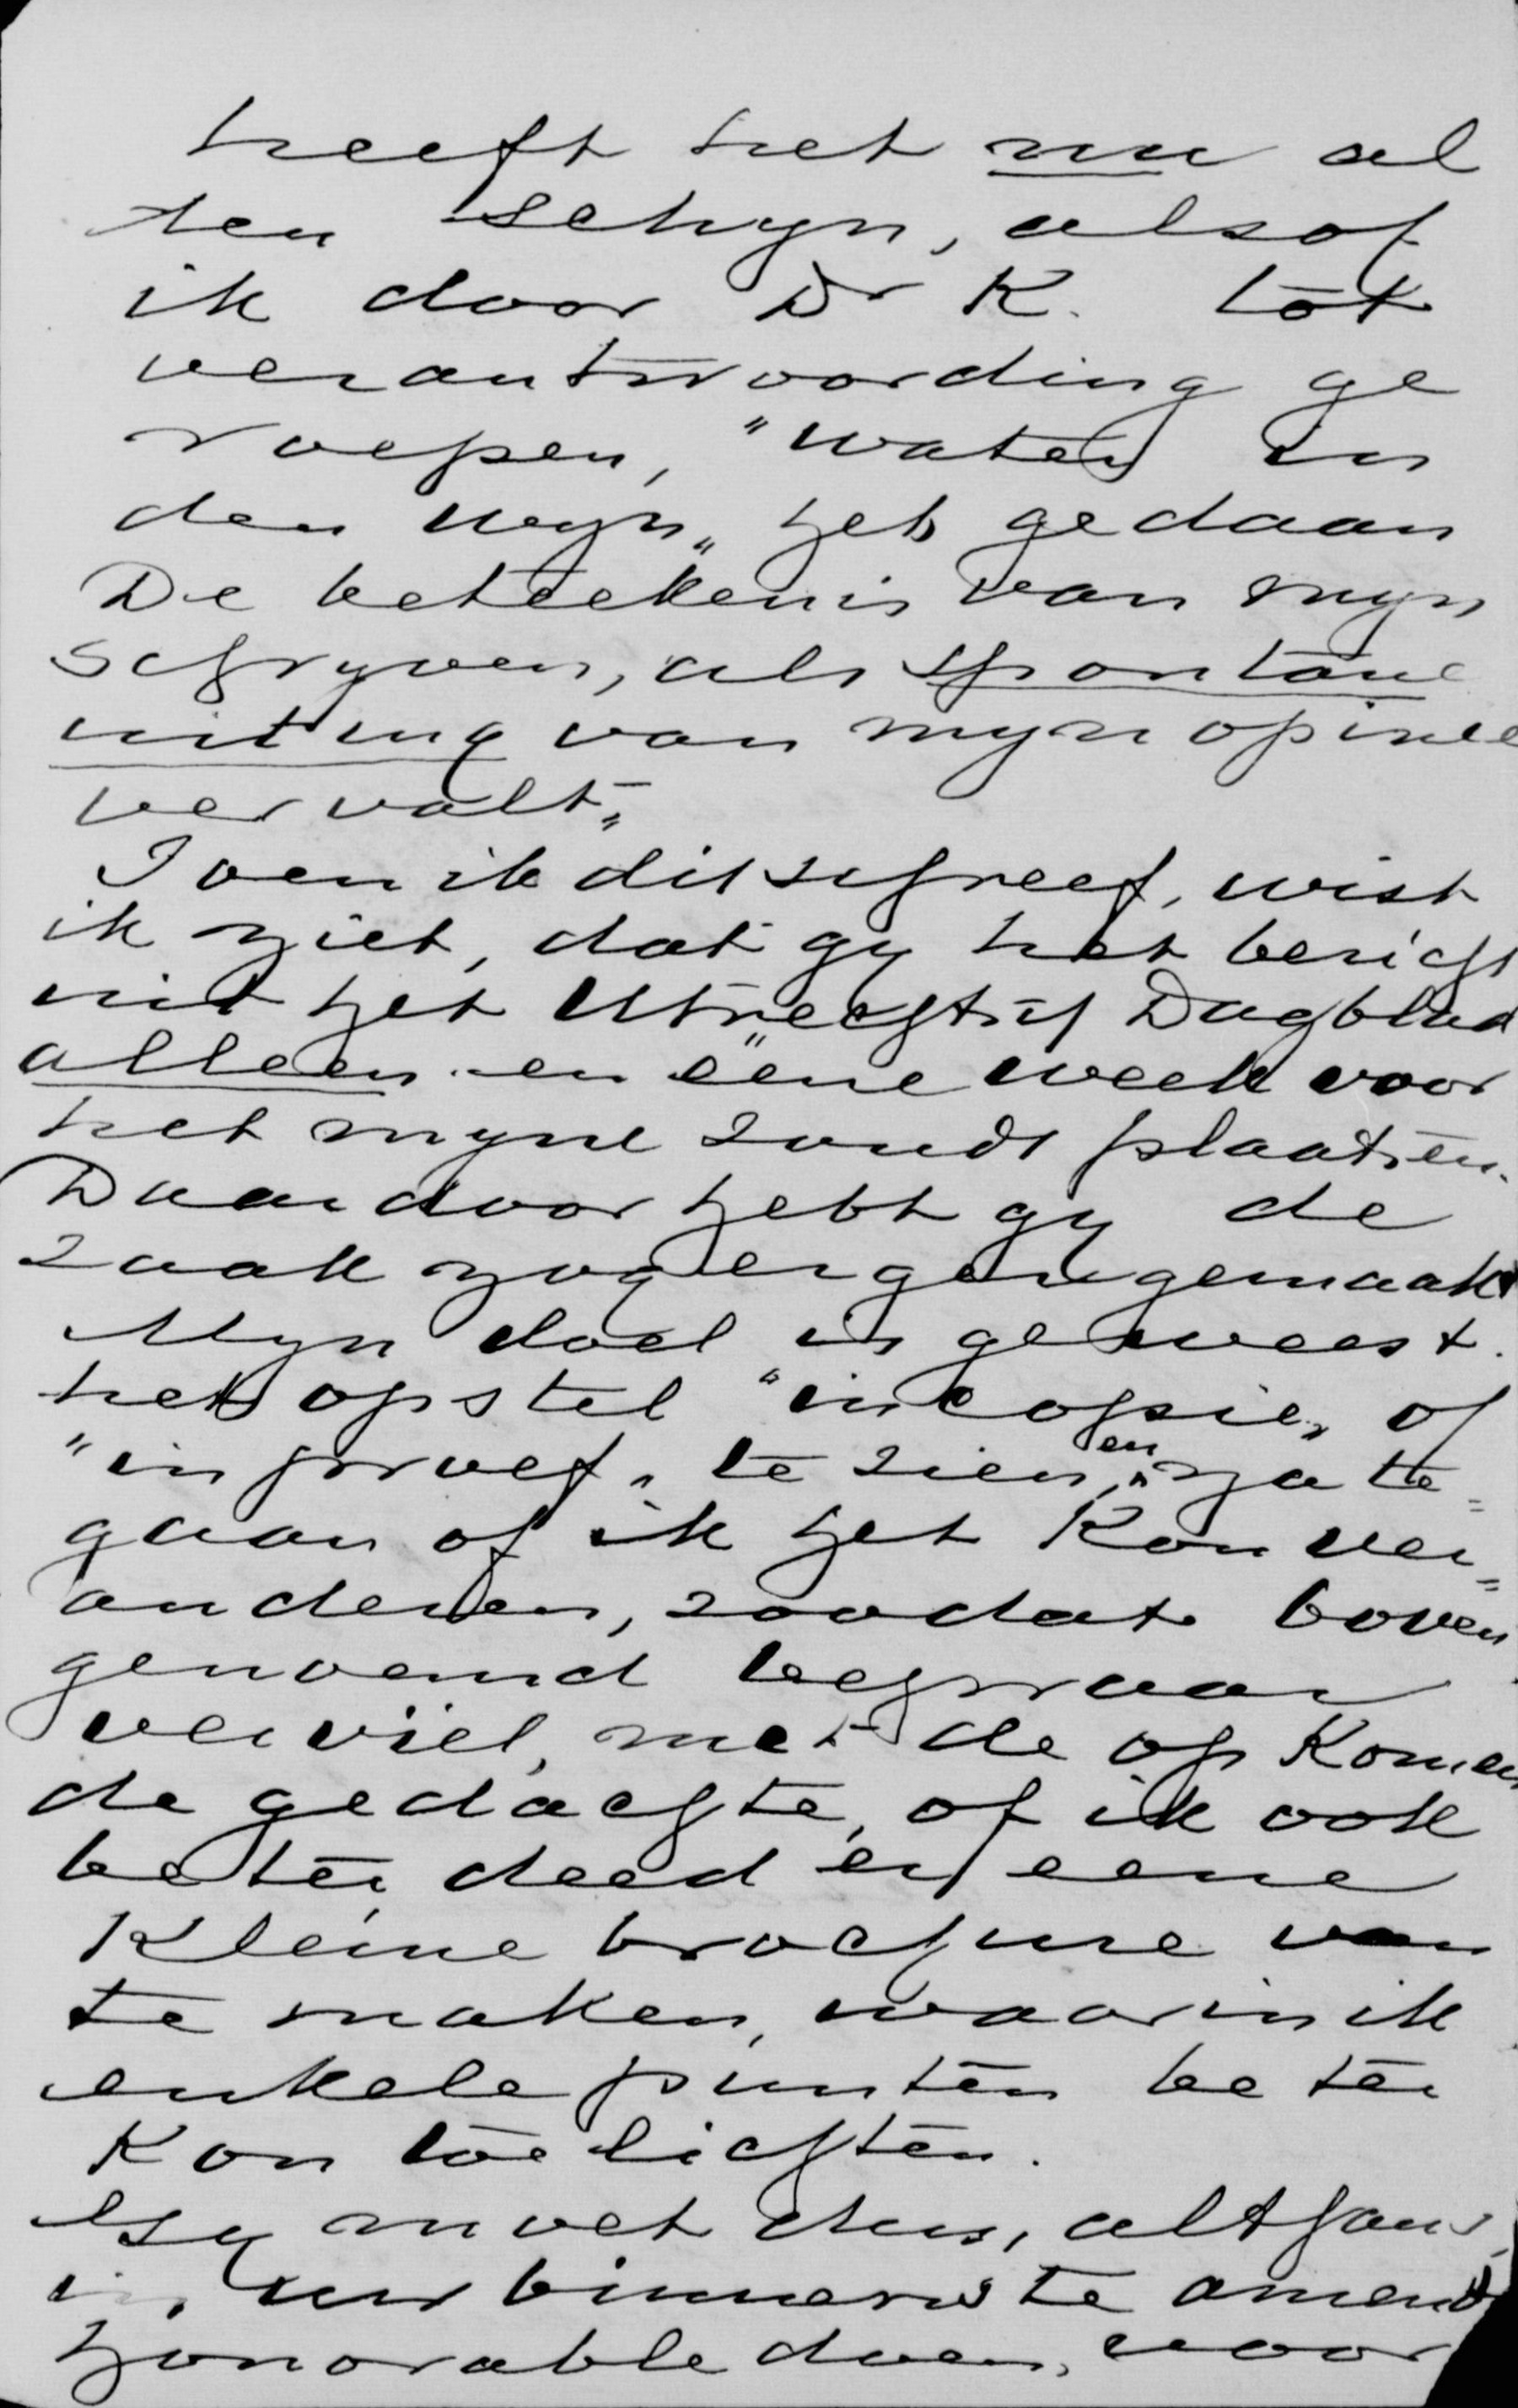 heeft het nu al
den schyn, alsof
ik door Dr K. tot
verantwoording ge
roepen, "water in
den wyn„ heb gedaan
De beteekenis van myn
schryven, als spontane
uiting van myn opinie
vervalt„
Toen ik dit schreef, wist
ik niet, dat gy het bericht
uit het Utrechtsch Dagblad
alleen en ééne week voor
het myne zoudt plaatsen.
Daardoor hebt gy de
zaak nog erger gemaakt
Myn doel is geweest.
het opstel "in copie„ of
"in proef„ te zien, en na te=
gaan of ik het kon ver=
anderen, zoodat boven
genoemd bezwaar
verviel, met de op komen
de gedachte, of ik ook
beter deed er eene
kleine brochure van
te maken, waarin ik
enkele punten beter
kon toelichten.
Gy moet dus, althans
in uw binnenste amende
honorable doen, voor